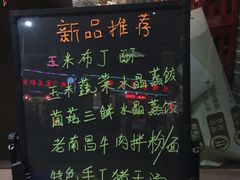 新品推荐
玉米布丁酥
玉米蔬菜水晶蒸饺
菌菇三鲜水晶蒸饺
老南昌牛肉拌粉/面
特色手工猪